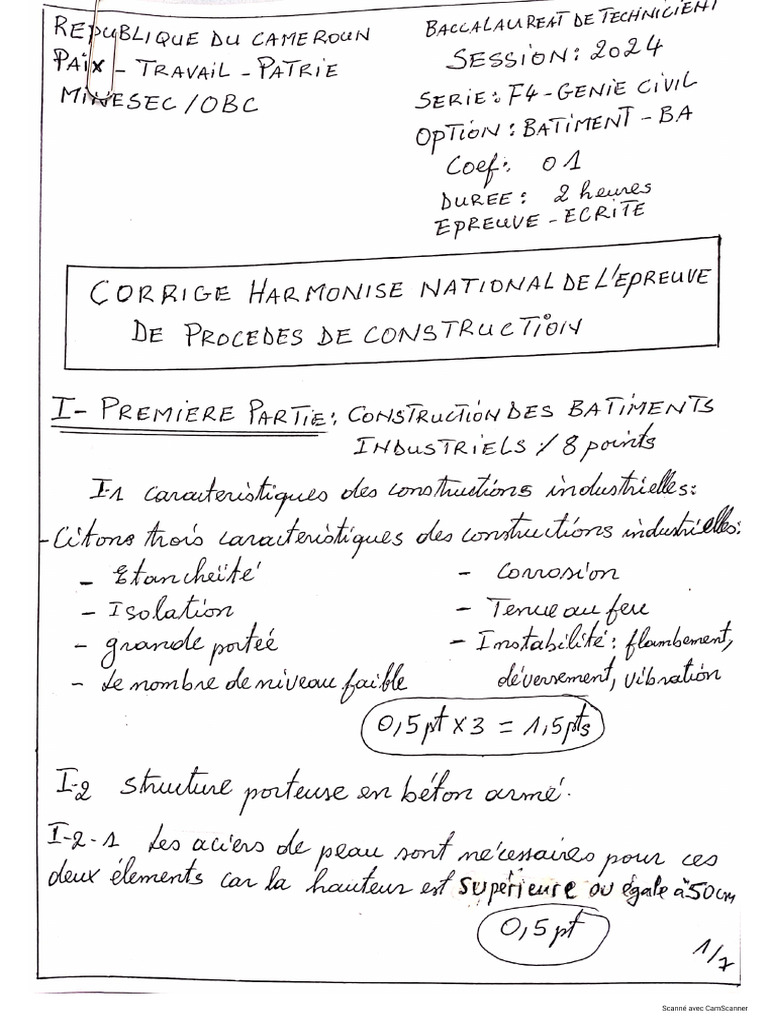 REPUBLIQUE DU CAMEROUN
PAIX - TRAVAIL - PATRIE
MINESEC/OBC
BACCALAUREAT DE TECHNICIEN
SESSION: 2024
SERIE: F4-GENIE CIVIL
OPTION: BATIMENT - BA
Coef: 01
DUREE: 2 heures
EPREUVE - ECRITE
CORRIGE HARMONISE NATIONAL DE L'EPREUVE
DE PROCEDES DE CONSTRUCTION
I- PREMIERE PARTIE: CONSTRUCTION DES BATIMENTS
INDUSTRIELS / 8 points
I-1 caracteristiques des constructions industrielles:
- Citons trois caracteristiques des constructions industrielles:
- Etancheïté
- Isolation
- grande portée
- Le nombre de niveau faible
- Corrosion
- Tenue au feu
- Instabilité: flambement,
déversement, vibration
0,5pt x 3 = 1,5pts
I-2 Structure porteuse en béton armé.
I-2-1 Les aciers de peau sont nécessaires pour ces
deux élements car la hauteur est supérieure ou égale à 50cm
0,5pt
1/7
Scanné avec CamScanner